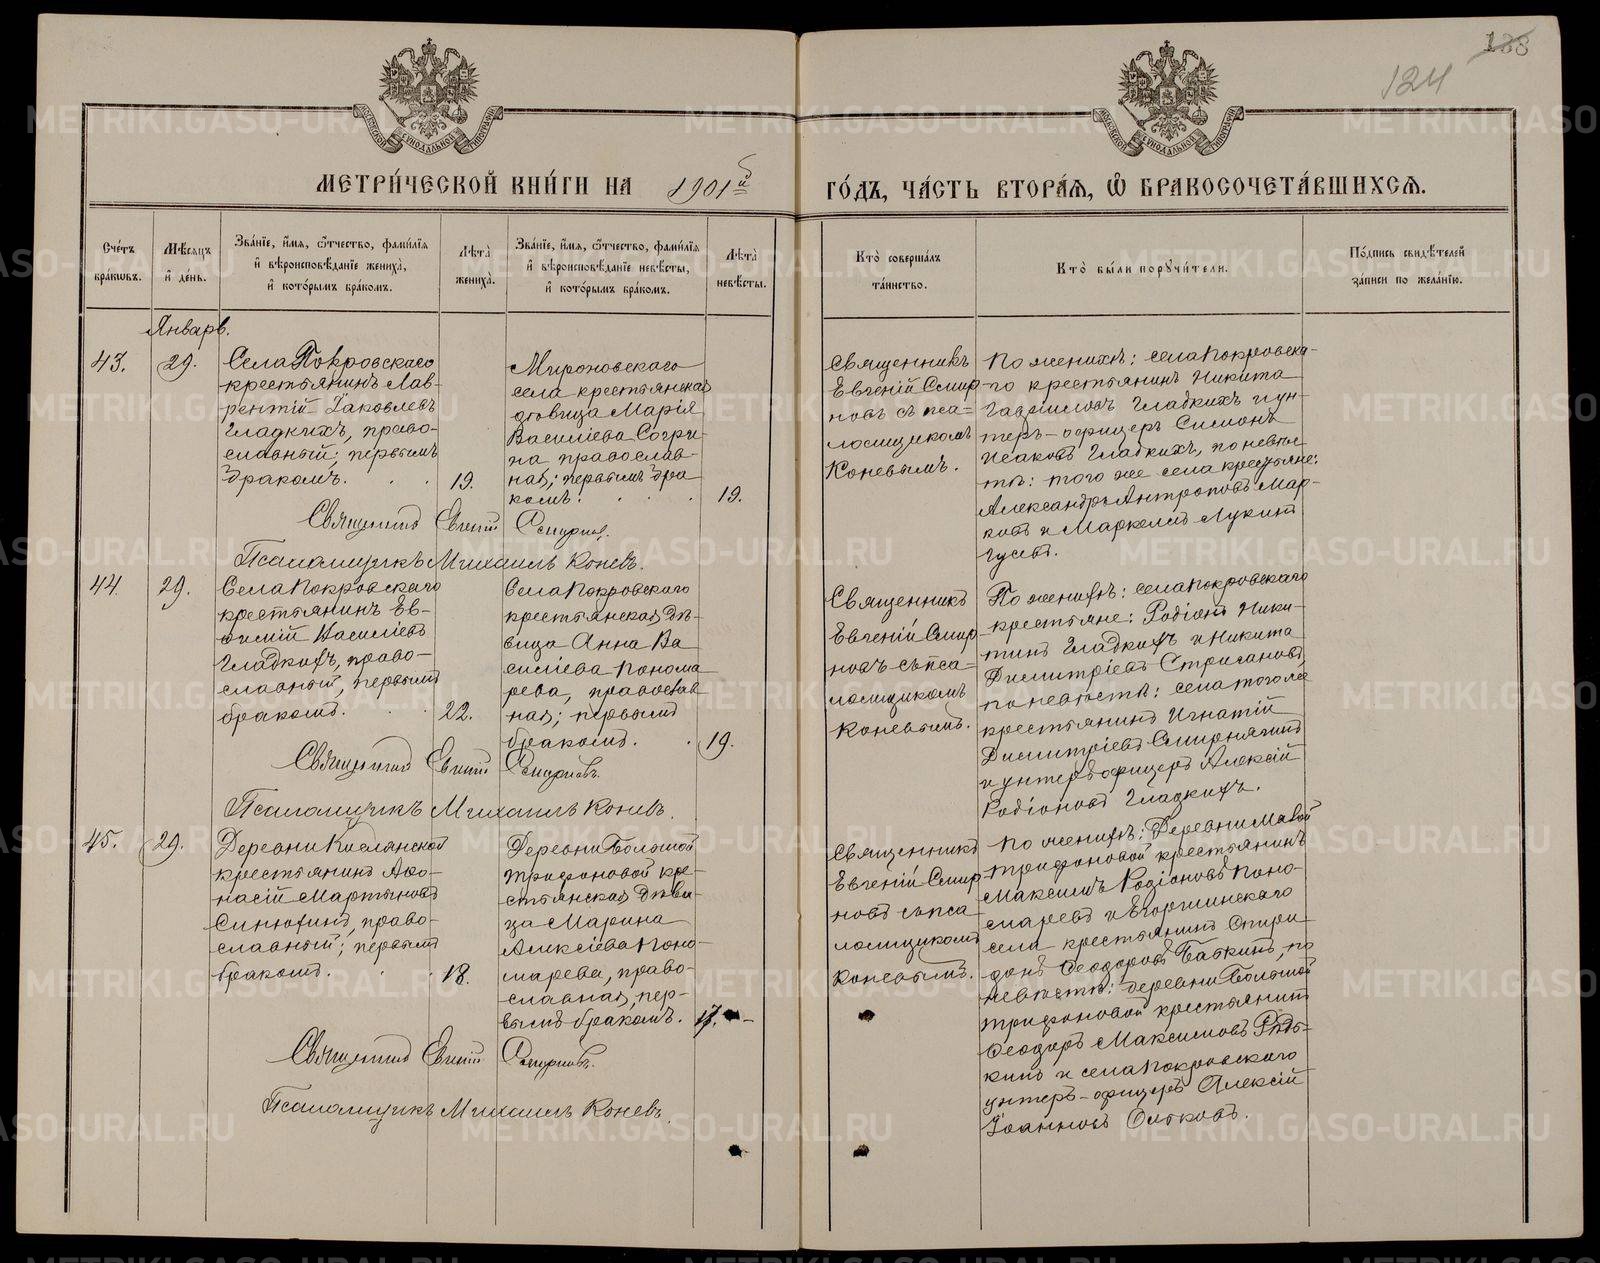 188
124
МЕТРИ́ЧЕСКОЙ КНИ́ГИ НА 1901й ГО́ДЪ, ЧА́СТЬ ВТОРА́Я, Ѽ БРАКОСОЧЕТА́ВШИХСЯ.
Сче́тъ бра́ковъ.
Мѣ́сяцъ и҆ де́нь.
Зва́нїе, и҆́мя, ѻ҆́тчество, фами́лїя и҆ вѣроисповѣ́данїе жениха̀, и҆ кото́рымъ бра́комъ.
Лѣ́та жениха̀.
Зва́нїе, и҆́мя, ѻ҆́тчество, фами́лїя и҆ вѣроисповѣ́данїе невѣ́сты, и҆ кото́рымъ бра́комъ.
Лѣ́та невѣ́сты.
Кто̀ соверша́лъ та́инство.
Кто̀ бы́ли порꙋчи́тели.
По́дпись свидѣ́телей за́писи по жела́нїю.
Январь.
43.
29.
Села Покровскаго
крестьянинъ Лав-
рентій Іаковлевъ
Гладкихъ, право-
славный; первымъ
бракомъ.
19.
Мироновскаго
села крестьянская
девица Марія
Василіева Согри-
на православ-
ная; первымъ бра
комъ.
19.
Священникъ
Евгеній Смир
новъ съ пса-
ломщикомъ
Коневымъ.
По женихѣ: села Покровска-
го крестьянинъ Никита
Гладкихъ и ун-
теръ-офицеръ Симонъ
Исаковъ Гладкихъ, по невѣс
тѣ: того же села крестьяне:
Александръ Антроповъ Мар-
ковъ и Маркелъ Лукинъ
Гусевъ.
Священникъ Евгеній Смирновъ.
Псаломщикъ Михаилъ Коневъ.
44.
29.
Села Покровскаго
крестьянинъ Ев-
фимій Василіевъ
Гладкихъ, право-
славный, первымъ
бракомъ.
22.
Села Покровскаго
крестьянская дѣ-
вица Анна Ва
силіева Понома
рева, православ
ная; первымъ
бракомъ.
19.
Священникъ
Евгеній Смир
новъ съ пса-
ломщикомъ
Коневымъ.
По женихѣ: села Покровскаго
крестьяне: Родіонъ Ники-
тинъ Гладкихъ и Никита
Димитріевъ Стригановъ,
по невѣстѣ: села того же
крестьянинъ Игнатій
Димитріевъ Смирнягинъ
и унтеръ офицеръ Алексій
Родіоновъ Гладкихъ.
Священникъ Евгеній Смирновъ.
Псаломщикъ Михаилъ Коневъ.
45.
29.
Деревни Кислянской
крестьянинъ Афо-
насій Мартыновъ
Синюхинъ, право-
славный; первымъ
бракомъ.
18.
Деревни Большой
Трифоновой кре-
стьянская дѣви-
ца Марина
Алексіева Поно-
марева, право-
славная, пер-
вымъ бракомъ.
17.
Священникъ
Евгеній Смир
новъ съ пса
ломщикомъ
Коневымъ.
По женихѣ: Деревни Малой
Трифоновой крестьянинъ
Максимъ Родіоновъ Поно-
маревъ и Егоршинскаго
села крестьянинъ Спири-
донъ Феодоровъ Бабкинъ, по
невѣстѣ: деревни Большой
Трифоновой крестьянинъ
Феодоръ Максимовъ Рѣдь-
кинъ и села Покровскаго
унтеръ-офицеръ Алексій
Іоанновъ
Священникъ Евгеній Смирновъ.
Псаломщикъ Михаилъ Коневъ.
METRIKI.GASO-URAL.RU